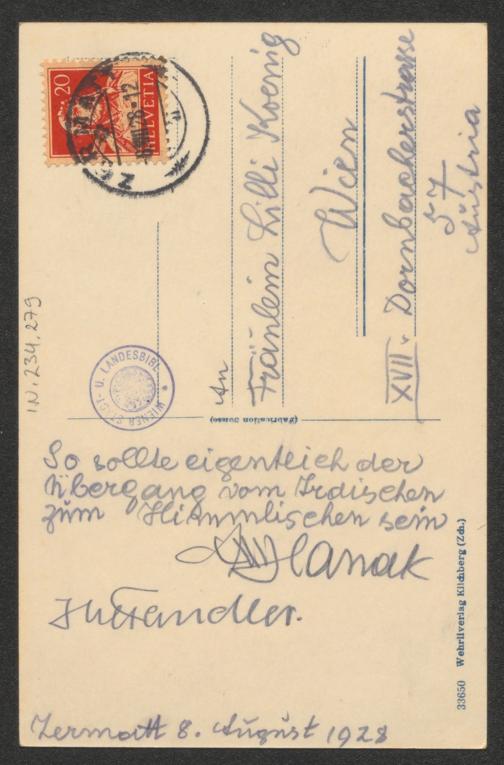 So sollte eigentlich der
Übergang vom Irdischen
zum Himmlischen sein
Hanak
Zermatt 8. August 1928
An
Fräulein Lilli Koenig
Wien
XVII. Dornbacherstrasse
57
Austria
20
HELVETIA
ZERMATT
WIENER STADT- U. LANDESBIBL.
(Fabrication Suisse)
33650 Wehrliverlag Kilchberg (Zch.)
IN. 234.279